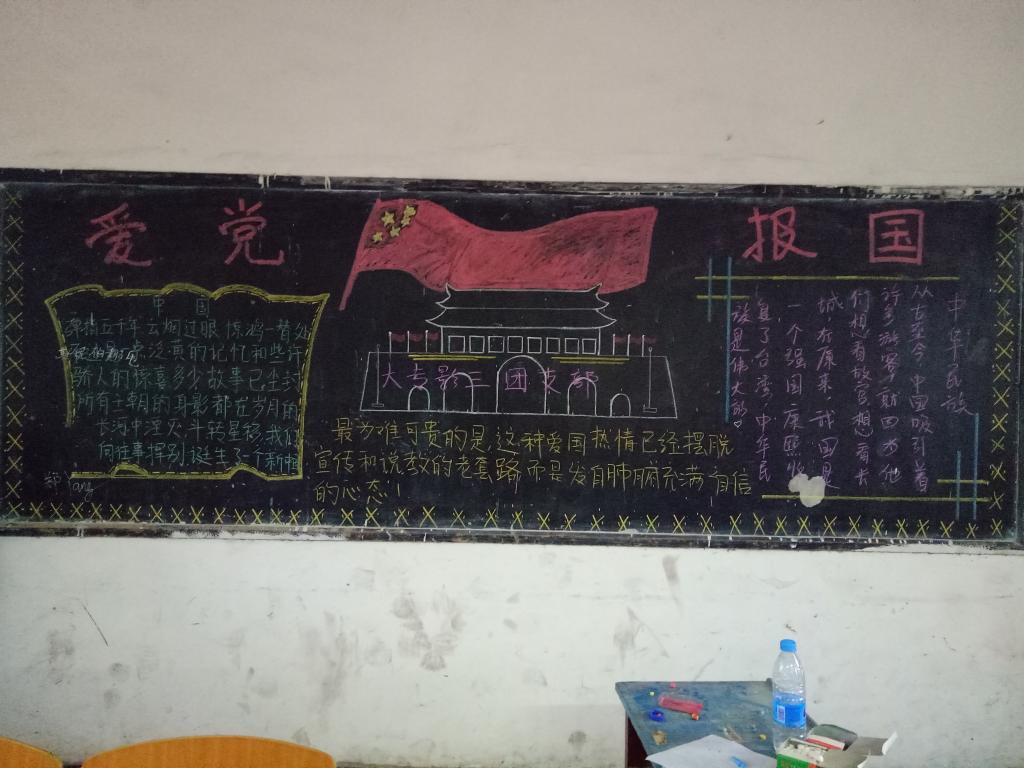 爱党
报国
中国
弹指五十年云烟过眼惊鸿一瞥处
点泛黄的记忆和些许
骄人的惊喜多少故事已尘封
所有王朝的身影都在岁月的
长河中湮灭斗转星移,我们
向往事挥别,诞生了一个新
大专影三团支部
最为难可贵的是,这种爱国热情已经摆脱
宣传和说教的老套路,而是发自肺腑充满自信
的心态!
中华民族
从古至今,中国吸引着
许多游客,斯因为他
们想看故宫,想看长
城,在原来,我国是
一个强国,康熙收
复了台湾,中华民
族是伟大的